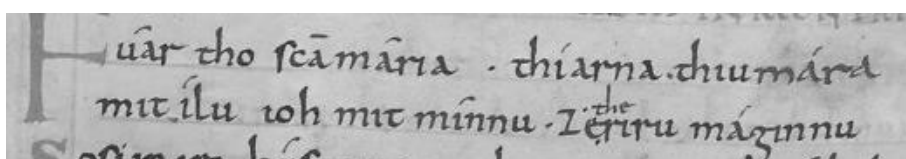 Fuár tho scā mária · thíarna . thiu mára
mit ílu ioh mit mínnu · Zetheriru máginnu